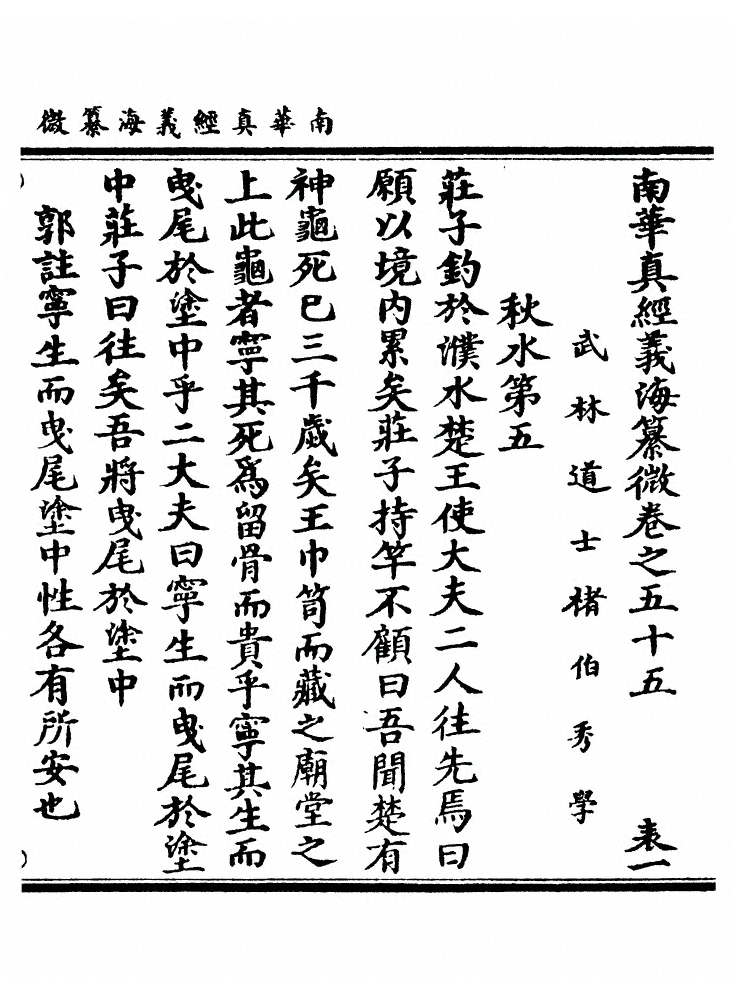 南華真經義海纂微
南華真經義海纂微卷之五十五 表一
武林道士褚伯秀學
秋水第五
莊子釣於濮水楚王使大夫二人往先焉曰
願以境内累矣莊子持竿不顧曰吾聞楚有
神龜死已三千歲矣王巾笥而藏之廟堂之
上此龜者寧其死爲留骨而貴乎寧其生而
曳尾於塗中乎二大夫曰寧生而曳尾於塗
中莊子曰往矣吾將曳尾於塗中
郭註寧生而曳尾塗中性各有所安也